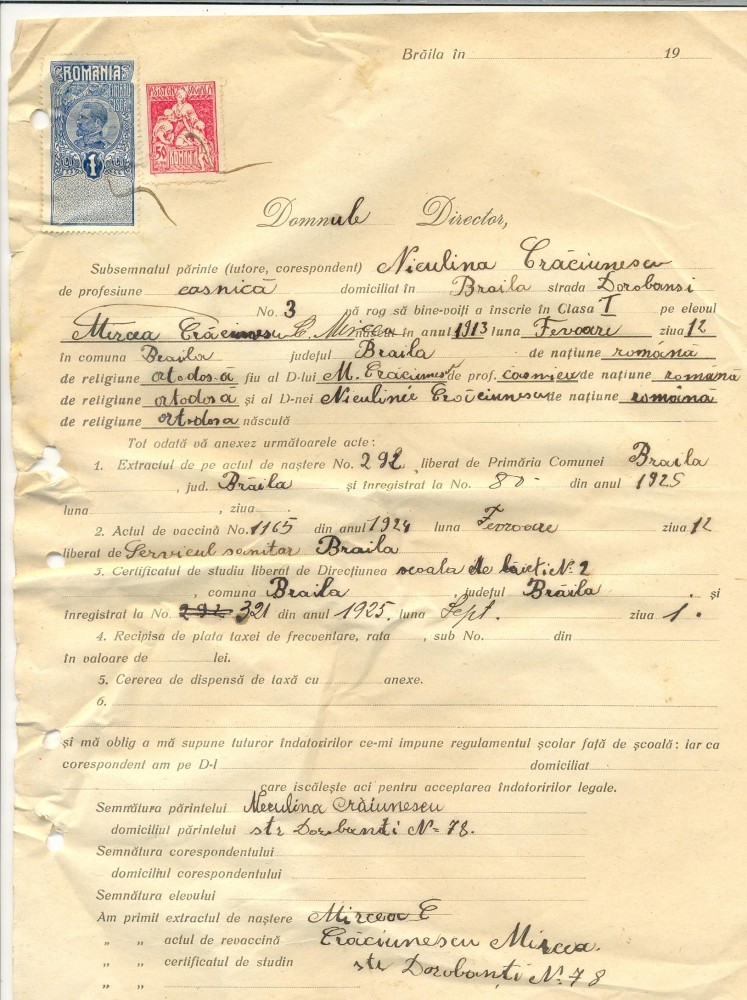 Brăila în 19
ROMANIA
1
ASISTENȚA SOCIALA
50
ROMANIA
Domnule Director,
Subsemnatul părinte (tutore, corespondent) Niculina Crăciunescu
de profesiune casnică domiciliat în Braila strada Dorobansi
No. 3 vă rog să bine-voiți a înscrie în Clasa I pe elevul
Mircea Crăciunescu C. Mircea în anul 1913 luna Fevoare ziua 12
în comuna Braila județul Braila de națiune română
de religiune ortodosă fiu al D-lui M. Crăciunescu de prof. casnicu de națiune română
de religiune ortodosa și al D-nei Niculinei Crăciunescu de națiune romana
de religiune ortodosa născută
Tot odată vă anexez următoarele acte:
1. Extractul de pe actul de naștere No. 292 liberat de Primăria Comunei Braila
, jud. Brăila și înregistrat la No. 80 - din anul 1925
luna , ziua
2. Actul de vaccină No. 1165 din anul 1924 luna Fevroare ziua 12
liberat de Serviciul sanitar Braila
3. Certificatul de studiu liberat de Direcțiunea scoala de băieti N. 2
, comuna Braila , județul Brăila și
înregistrat la No. 292 321 din anul 1925. luna Sept. ziua 1.
4. Recipisa de plata taxei de frecventare, rata , sub No. din
în valoare de lei.
5. Cererea de dispensă de taxă cu anexe.
6.
și mă oblig a mă supune tuturor îndatoririlor ce-mi impune regulamentul școlar față de școală: iar ca
corespondent am pe D-l domiciliat
care iscălește aci pentru acceptarea îndatoririlor legale.
Semnătura părintelui Neculina Crăiunescu
domiciliul părintelui str Dorobanti No 78.
Semnătura corespondentului
domiciliul corespondentului
Semnătura elevului
Am primit extractul de naștere Mircea C
„ „ actul de revaccină Crăciunescu Mircea.
„ „ certificatul de studin str Dorobanți No. 78
„ „